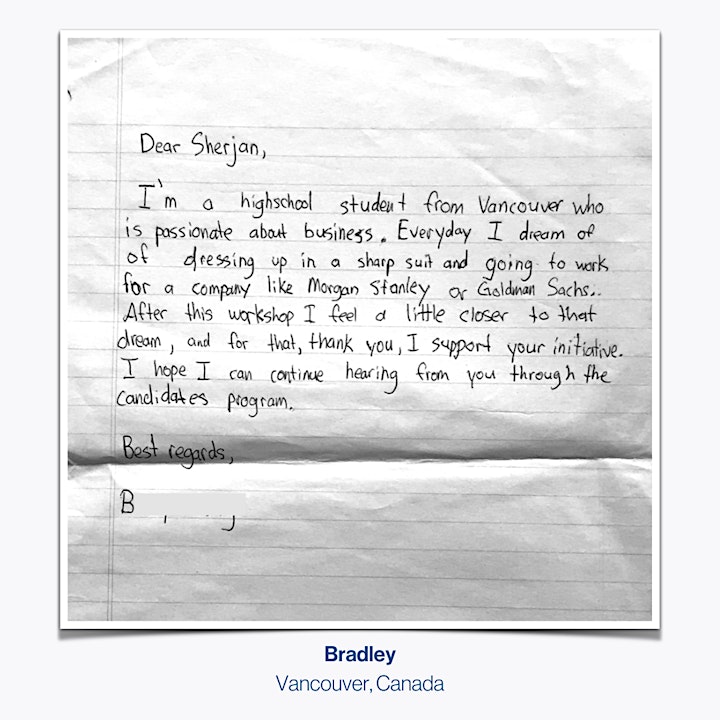 Dear Sherjan,
I'm a highschool student from Vancouver who
is passionate about business. Everyday I dream of
of dressing up in a sharp suit and going to work
for a company like Morgan Stanley or Goldman Sachs.
After this workshop I feel a little closer to that
dream, and for that, thank you, I support your initiative.
I hope I can continue hearing from you through the
candidates program.
Best regards,
B
Bradley
Vancouver, Canada